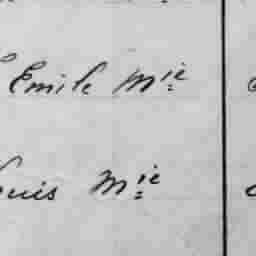 Emile Mie
ouis Mie